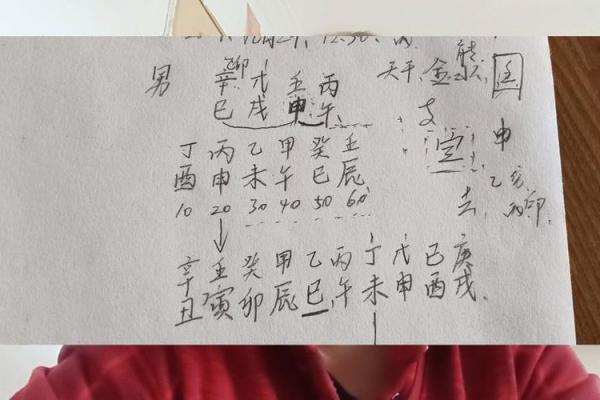 10月2日, 12:30.
男 辛 戊 壬 丙 天干, 金
巳 戌 申 午 支
丁 丙 乙 甲 癸 壬 申
酉 申 未 午 巳 辰 乙亥
10 20 30 40 50 60 去 丙卯
辛 壬 癸 甲 乙 丙 丁 戊 己 庚
丑 寅 卯 辰 巳 午 未 申 酉 戌